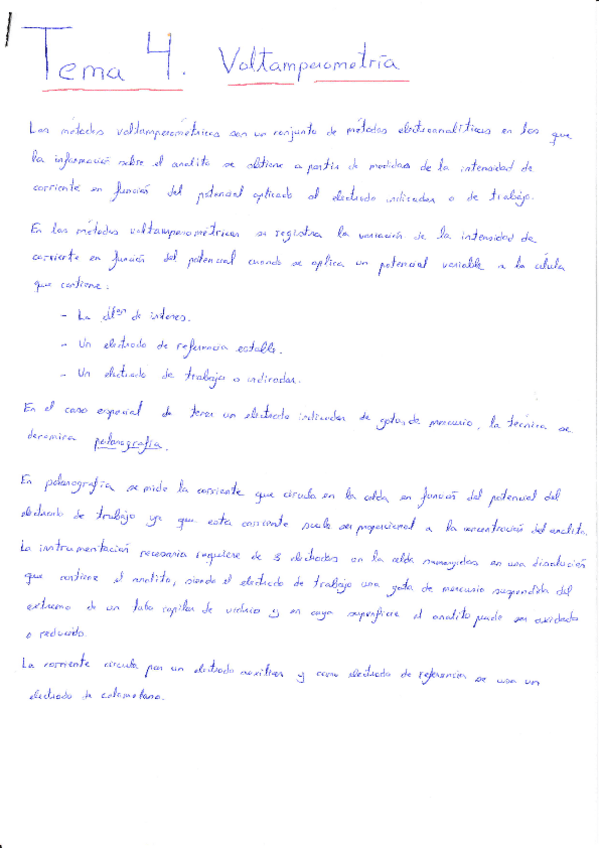 Tema 4. Voltamperometría
Los métodos voltamperométricos son un conjunto de métodos electroanalíticos en los que
la información sobre el analito se obtiene a partir de medidas de la intensidad de
corriente en función del potencial aplicado al electrodo indicador o de trabajo.
En los métodos voltamperométricos se registra la variación de la intensidad de
corriente en función del potencial cuando se aplica un potencial variable a la célula
que contiene:
- La dlon de interes.
- Un electrodo de referencia estable.
- Un electrodo de trabajo o indicador.
En el caso especial de tener un electrodo indicador de gotas de mercurio, la técnica se
denomina polarografía.
En polarografía se mide la corriente que circula en la celda en función del potencial del
electrodo de trabajo ya que esta corriente suele ser proporcional a la concentración del analito.
La instrumentación necesaria requiere de 3 electrodos en la celda sumergidos en una disolución
que contiene el analito, siendo el electrodo de trabajo una gota de mercurio suspendida del
extremo de un tubo capilar de vidrio y en cuya superficie el analito puede ser oxidado
o reducido.
La corriente circula por un electrodo auxiliar y como electrodo de referencia se usa un
electrodo de calomelano.